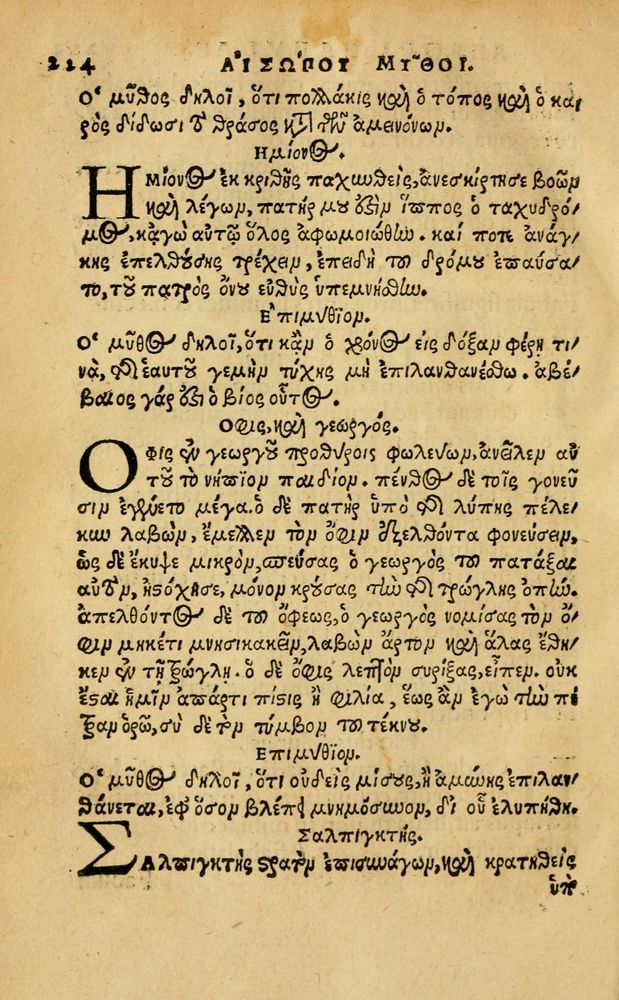 224 ΑἸΣΩΠΟΥ ΜΥ͂ΘΟΙ.
Ο῾ μῦθος δηλοῖ, ὅτι πολλάκις καὶ ὁ τόπος καὶ ὁ και
ρὸς δίδωσι τὸ θράσος κατὰ τῶν ἀμεινόνων.
Ημίονος.
ΗΜίονος ἐκ κριθῆς παχυνθεῖς, ἀνεσκίρτησε βοῶν
καὶ λέγων, πατήρ μου ἐστὶν ἵππος ὁ ταχυδρό-
μος, κᾀγὼ αὐτῷ ὅλος ἀφωμοιώθην. καί ποτε ἀνάγ-
κης ἐπελθούσης τρέχειν, ἐπειδὴ τοῦ δρόμου ἐπαύσα-
το, τοῦ πατρὸς ὄνου εὐθὺς ὑπεμνήσθην.
Επιμύθιον.
Ο῾ μῦθος δηλοῖ, ὅτι κᾂν ὁ χρόνος εἰς δόξαν φέρῃ τι-
νὰ, τῆς ἑαυτοῦ γεμὴν τύχης μὴ ἐπιλανθανέσθω. ἀβέ-
βαιος γάρ ἐστι ὁ βίος οὗτος.
Οφις, καὶ γεωργός.
ΟΦις ἐν γεωργοῦ προθύροις φωλεύων, ἀνεῖλεν αὐ
τοῦ τὸ νήπιον παιδίον. πένθος δὲ τοῖς γονεῦ
σιν ἐγένετο μέγα. ὁ δὲ πατὴρ ὑπὸ τῆς λύπης πέλε-
κυν λαβὼν, ἔμελλεν τὸν ὄφιν ἐξελθόντα φονεύσειν,
ὡς δὲ ἔκυψε μικρὸν, σπεύσας ὁ γεωργὸς τοῦ πατάξαι
αὐτὸν, ἠστόχησε, μόνον κρούσας τὴν τῆς τρώγλης ὀπὴν.
ἀπελθόντος δὲ τοῦ ὄφεως, ὁ γεωργὸς νομίσας τὸν ὄ-
φιν μηκέτι μνησικακεῖν, λαβὼν ἄρτον καὶ ἅλας ἔθη-
κεν ἐν τῇ τρώγλῃ. ὁ δὲ ὄφις λεπτὸν συρίξας, εἶπεν. οὐκ
ἔσται ἡμῖν ἀπάρτι πίστις ἢ φιλία, ἕως ἂν ἐγὼ τὴν πέ
τραν ὁρῶ, σὺ δὲ τὸν τύμβον τοῦ τέκνου.
Επιμύθιον.
Ο῾ μῦθος δηλοῖ, ὅτι οὐδεὶς μίσους, ἢ ἀμύνης ἐπιλαν-
θάνεται, ἐφ' ὅσον βλέπει μνημόσυνον, δι οὗ ἐλυπήθη.
Σαλπιγκτής.
ΣΑλπιγκτὴς στρατὸν ἐπισυνάγων, καὶ κρατηθεὶς
ὑπὸ